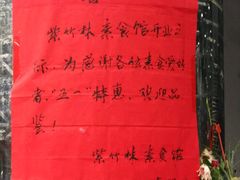 紫竹林素食馆开业之
际,为感谢各位素食爱好
者,"五一"特惠,欢迎品
鉴!
紫竹林素食馆